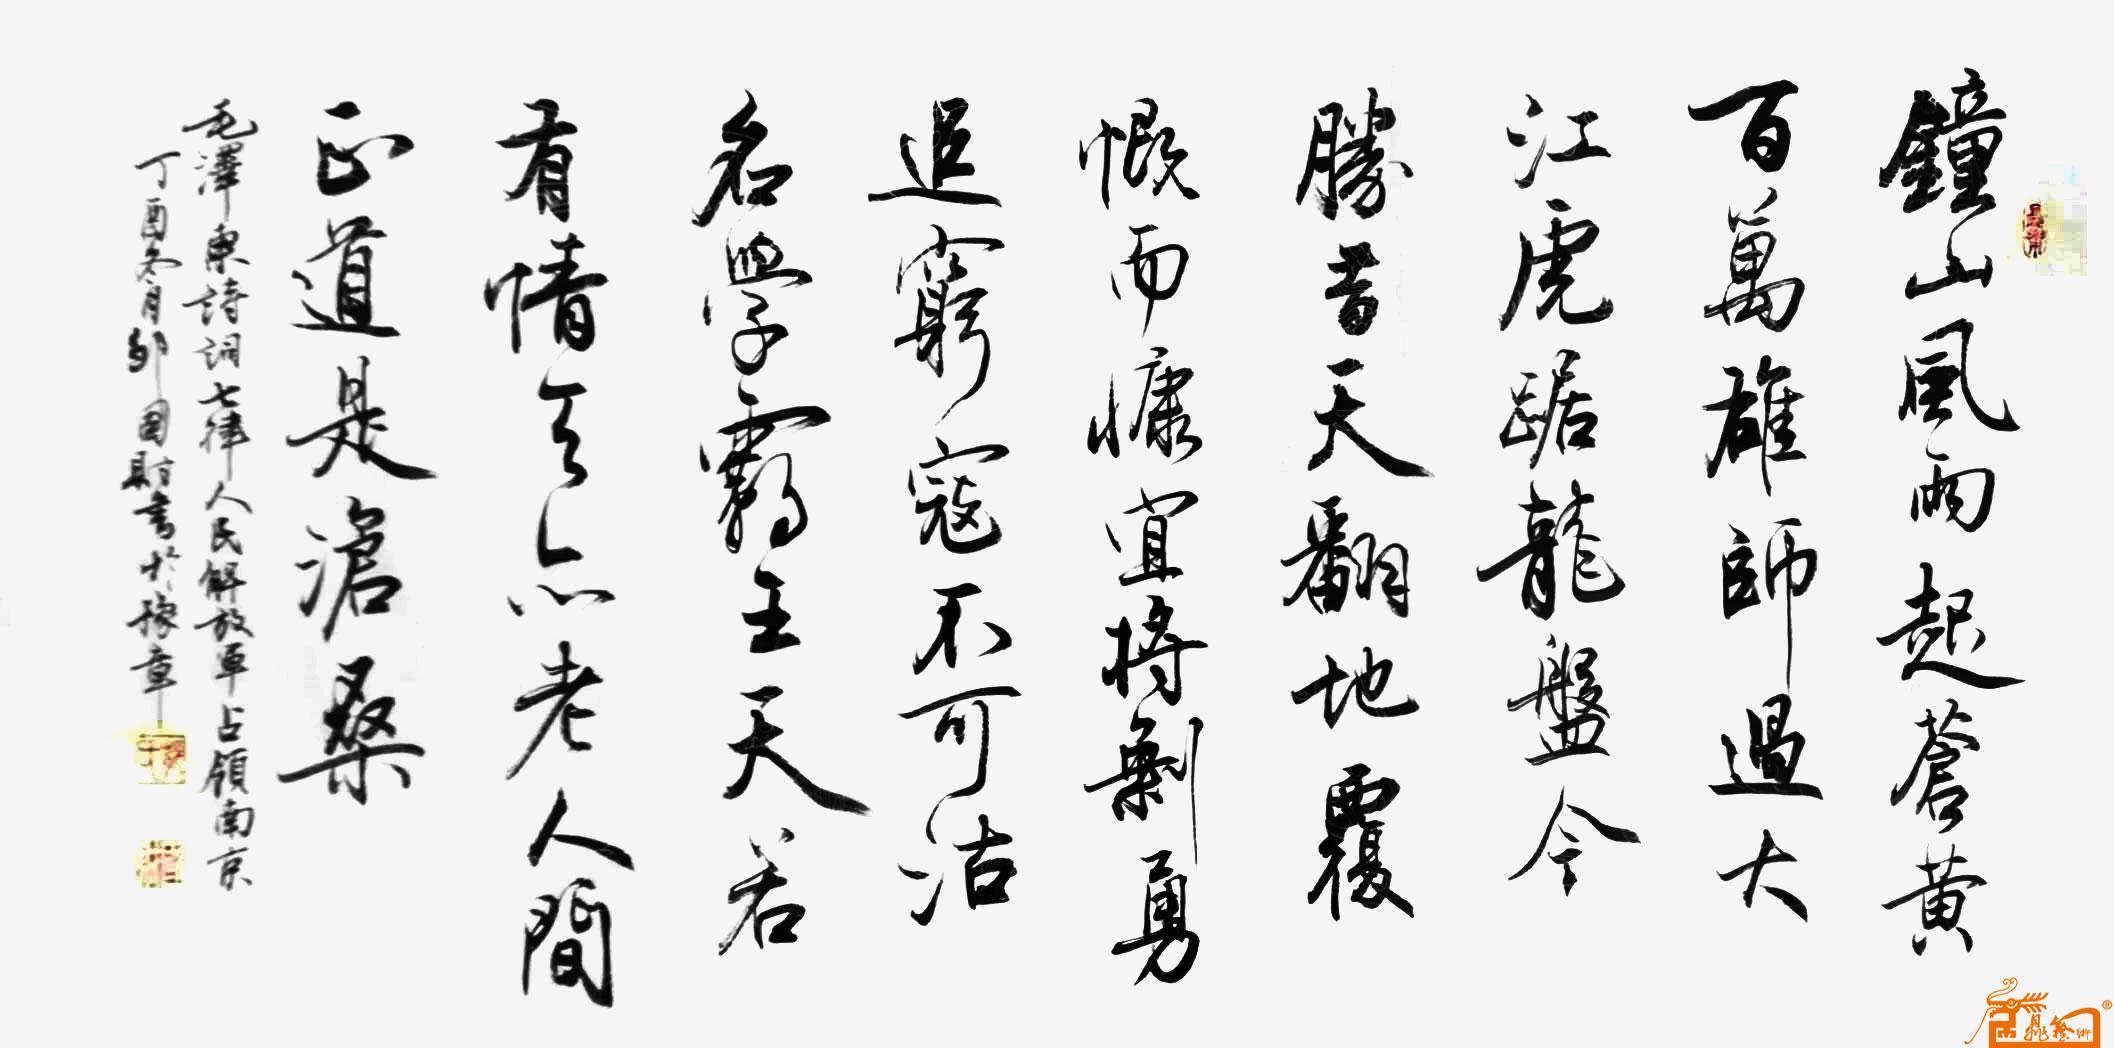 鐘山風雨起蒼黃
百萬雄師過大
江虎踞龍盤今
勝昔天翻地覆
慨而慷宜將剩勇
追窮寇不可沽
名學霸王天若
有情天亦老人間
正道是滄桑
毛澤東詩詞七律人民解放軍占領南京
丁酉冬月鄒國財書於豫章